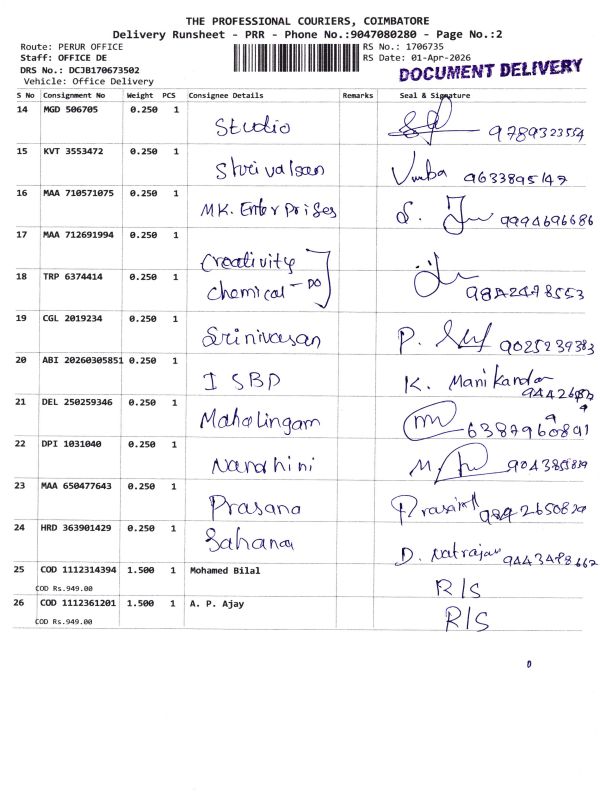 THE PROFESSIONAL COURIERS, COIMBATORE
Delivery Runsheet - PRR - Phone No.:9047080280 - Page No.:2
Route: PERUR OFFICE RS No.: 1706735
Staff: OFFICE DE RS Date: 01-Apr-2026
DRS No.: DCJB170673502 DOCUMENT DELIVERY
Vehicle: Office Delivery
S No Consignment No Weight PCS Consignee Details Remarks Seal & Signature
14 MGD 506705 0.250 1 Studio 9789323554
15 KVT 3553472 0.250 1 Shrivalsan 9633895147
16 MAA 710571075 0.250 1 M.K. Enter Prises S. 9994696686
17 MAA 712691994 0.250 1 Creativity
18 TRP 6374414 0.250 1 Chemical - DO 9842478553
19 CGL 2019234 0.250 1 Srinivasan P. 9025239383
20 ABI 20260305851 0.250 1 I SBD K. Manikandan
21 DEL 250259346 0.250 1 Mahalingam 6387960891
22 DPI 1031040 0.250 1 Nandhini M
23 MAA 650477643 0.250 1 Prasana
24 HRD 363901429 0.250 1 Sahana D. Natrajan 9443498662
25 COD 1112314394 1.500 1 Mohamed Bilal R/S
COD Rs.949.00
26 COD 1112361201 1.500 1 A. P. Ajay R/S
COD Rs.949.00
0